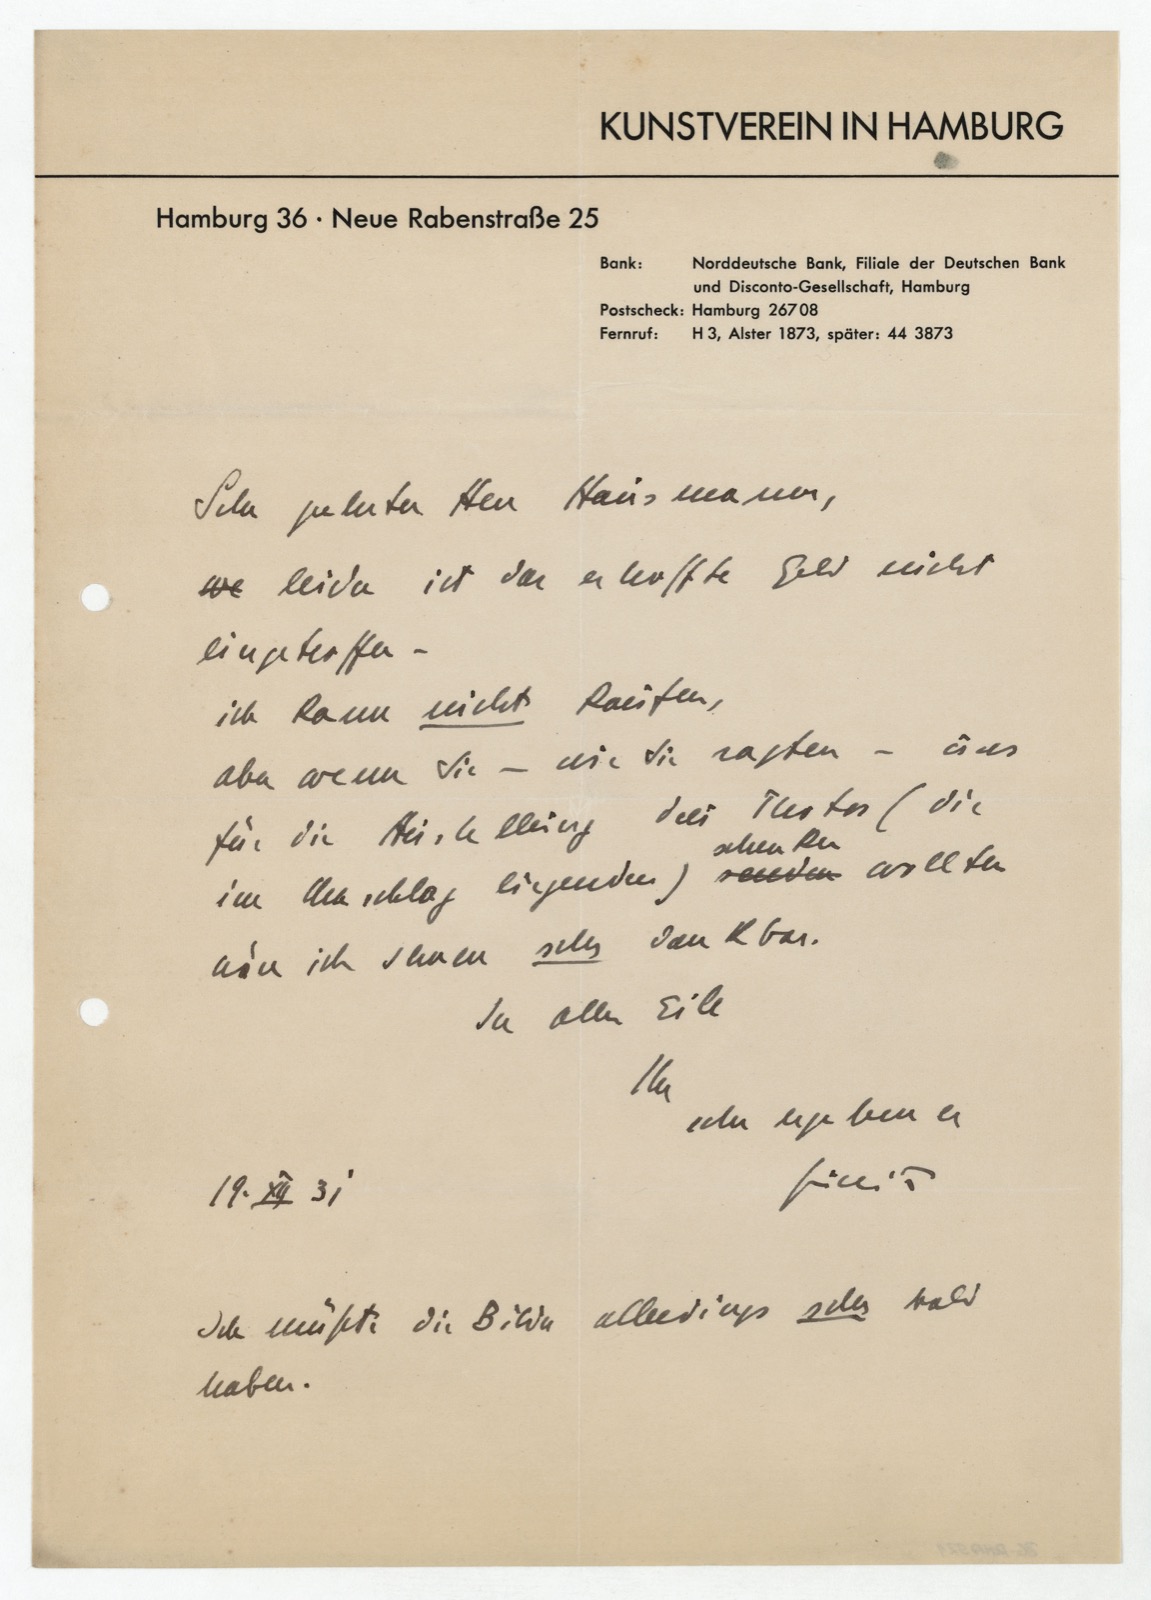 KUNSTVEREIN IN HAMBURG
Hamburg 36 · Neue Rabenstraße 25
Bank: Norddeutsche Bank, Filiale der Deutschen Bank
und Disconto-Gesellschaft, Hamburg
Postscheck: Hamburg 26708
Fernruf: H 3, Alster 1873, später: 44 3873
Sehr geehrter Herr Hausmann,
leider ist das erhoffte Geld nicht
eingetroffen –
ich kann nicht kaufen,
aber wenn Sie – wie Sie sagten – uns
für die Ausstellung drei Photos (die
schenken
im Umschlag liegenden) senden wollten
wäre ich Ihnen sehr dankbar.
In aller Eile
Ihr
sehr ergebener
19. XII 31
Ich müßte die Bilder allerdings sehr bald
haben.